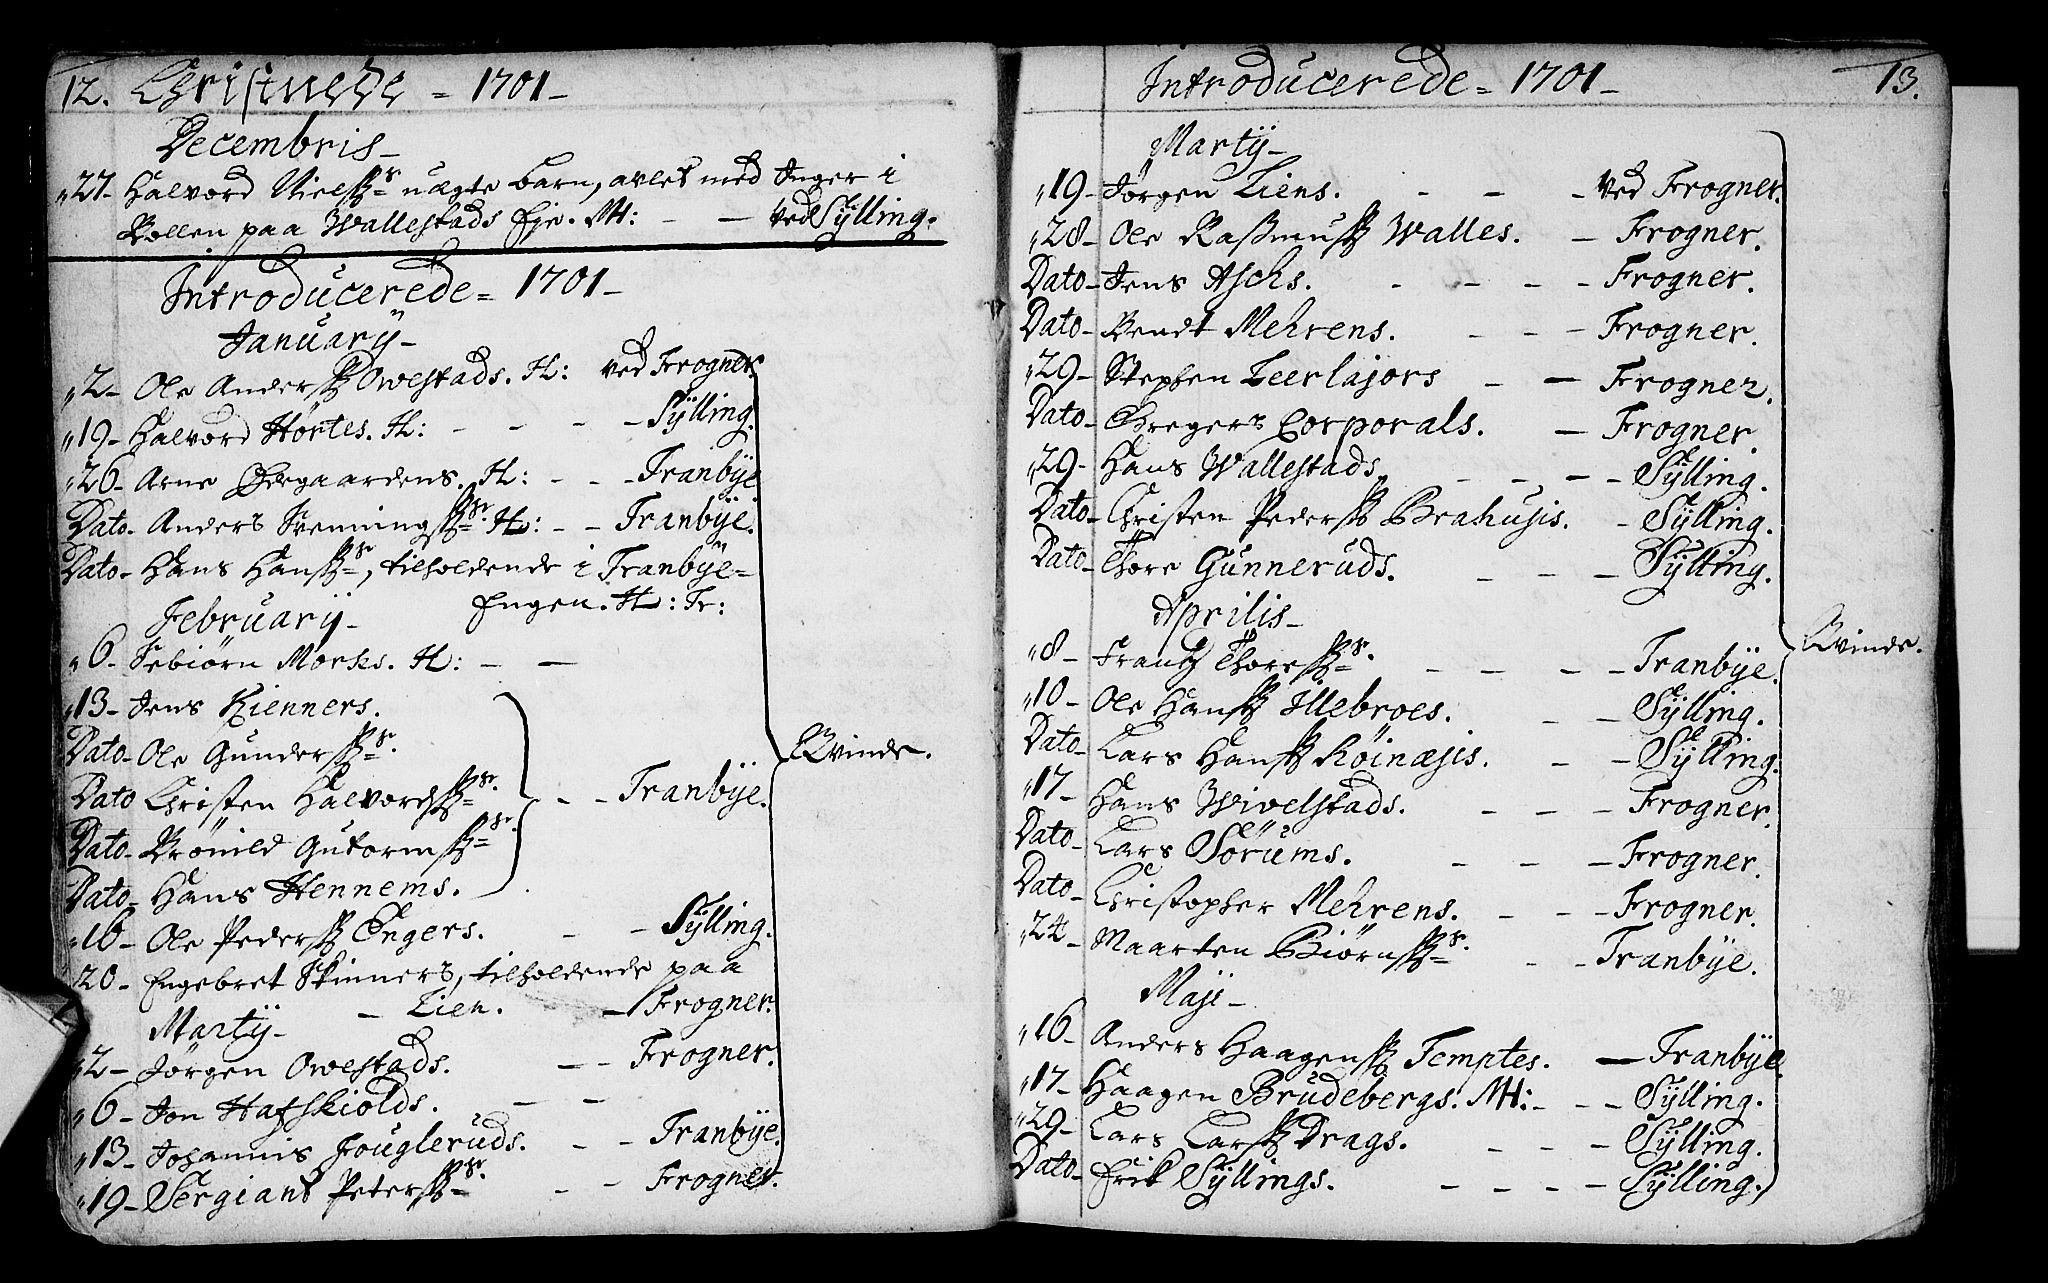 12. Christnede = 1701 -
Decembris -
27 - Halvord Nielss: uægte barn, avlet med Inger i
Kollen paa Wallestads Eje. M: - - ved Sÿlling.
Introducerede = 1701 -
Januarij -
2 - Ole Anderss Owestads. H: ved Frogner.
19 - Halvord Hørtes. H: - - - - Sÿlling.
26 - Arne Ødegaardens. H: - - - Tranbÿe
Dato - Anders Svenningss: H: - - Tranbÿe.
Dato - Hans Hanss:, tilholdende i Tranbÿe =
Engen. H: Tr:
Februarij -
6 - Febiørn Morks. H: - -
13 - Jens Kienners.
Dato - Ole Gunderss:
Dato Christen Halvordss: - - Tranbÿe.
Dato - Brönild Gutormss:
Dato - Hans Hennems.
Qvinde.
16 - Ole Pederss Engers. - - Sÿlling.
20 - Engebret Skinners, tilholdende paa
- Lien. - Frogner.
Martij -
2 - Jørgen Owestads. - - Frogner.
6 - Jon Hafskiolds. - -
13 - Johannis Fougleruds. - - Tranbÿe.
19 - Sergiant Peterss: - - Frogner.
Introducerede = 1701 - 13.
Martij -
19 - Jørgen Liens. - - - ved Frogner.
28 - Ole Rasmuss Walles. - Frogner.
Dato - Jens Aschs. - - - - Frogner.
Dato - Bendt Mehrens. - - - Frogner.
29 - Stephen Leerlajors - - Frogner.
Dato - Gregers Corporals. - Frogner.
29 - Hans Wallestads. - - - - Sÿlling.
Dato - Christen Pederss Brahusis. - Sÿlling.
Dato - Thore Gunneruds. - - - Sÿlling.
Aprilis -
8 - Frantz Thoress: - - - - Tranbÿe.
Qvinde.
10 - Ole Hanss Illebroes. - - Sÿlling.
Dato - Lars Hanss Röinæsis. - - Sÿlling.
17 - Hans Wivelstads. - - - Frogner.
Dato - Lars Sörums. - - - Frogner.
Dato - Christopher Mehrens. - - - Frogner.
24 - Maarten Biørnss: - - Tranbÿe.
Maji -
16 - Anders Haagenss Temptes. - Tranbÿe.
17 - Haagen Brudebergs. M: - - - Sÿlling.
29 - Lars Larss Drags. - - - Sÿlling.
Dato - Erik Sÿllings. - - - - Sÿlling.